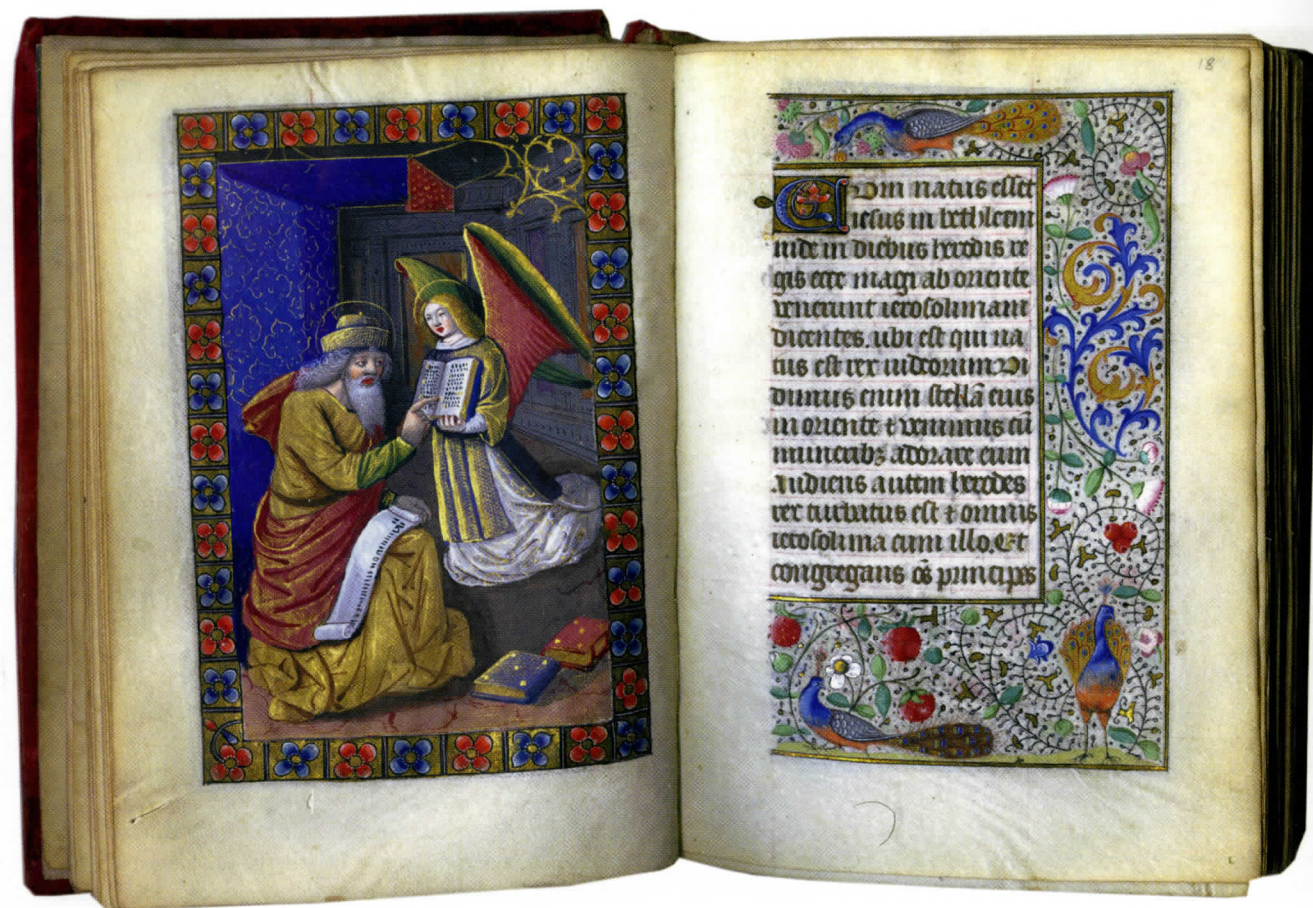 18
Cum natus esset
iesus in bethleem
iude in diebus herodis re
gis ecce magi ab oriente
venerunt ierosolimam
dicentes. ubi est qui na
tus est rex iudeorum Vi
dimus enim stellā eius
in oriente ⁊ venimus cū
munerib₃ adorare eum
Audiens autem herodes
rex turbatus est ⁊ omnis
ierosolima cum illo. Et
congregans oēs principes